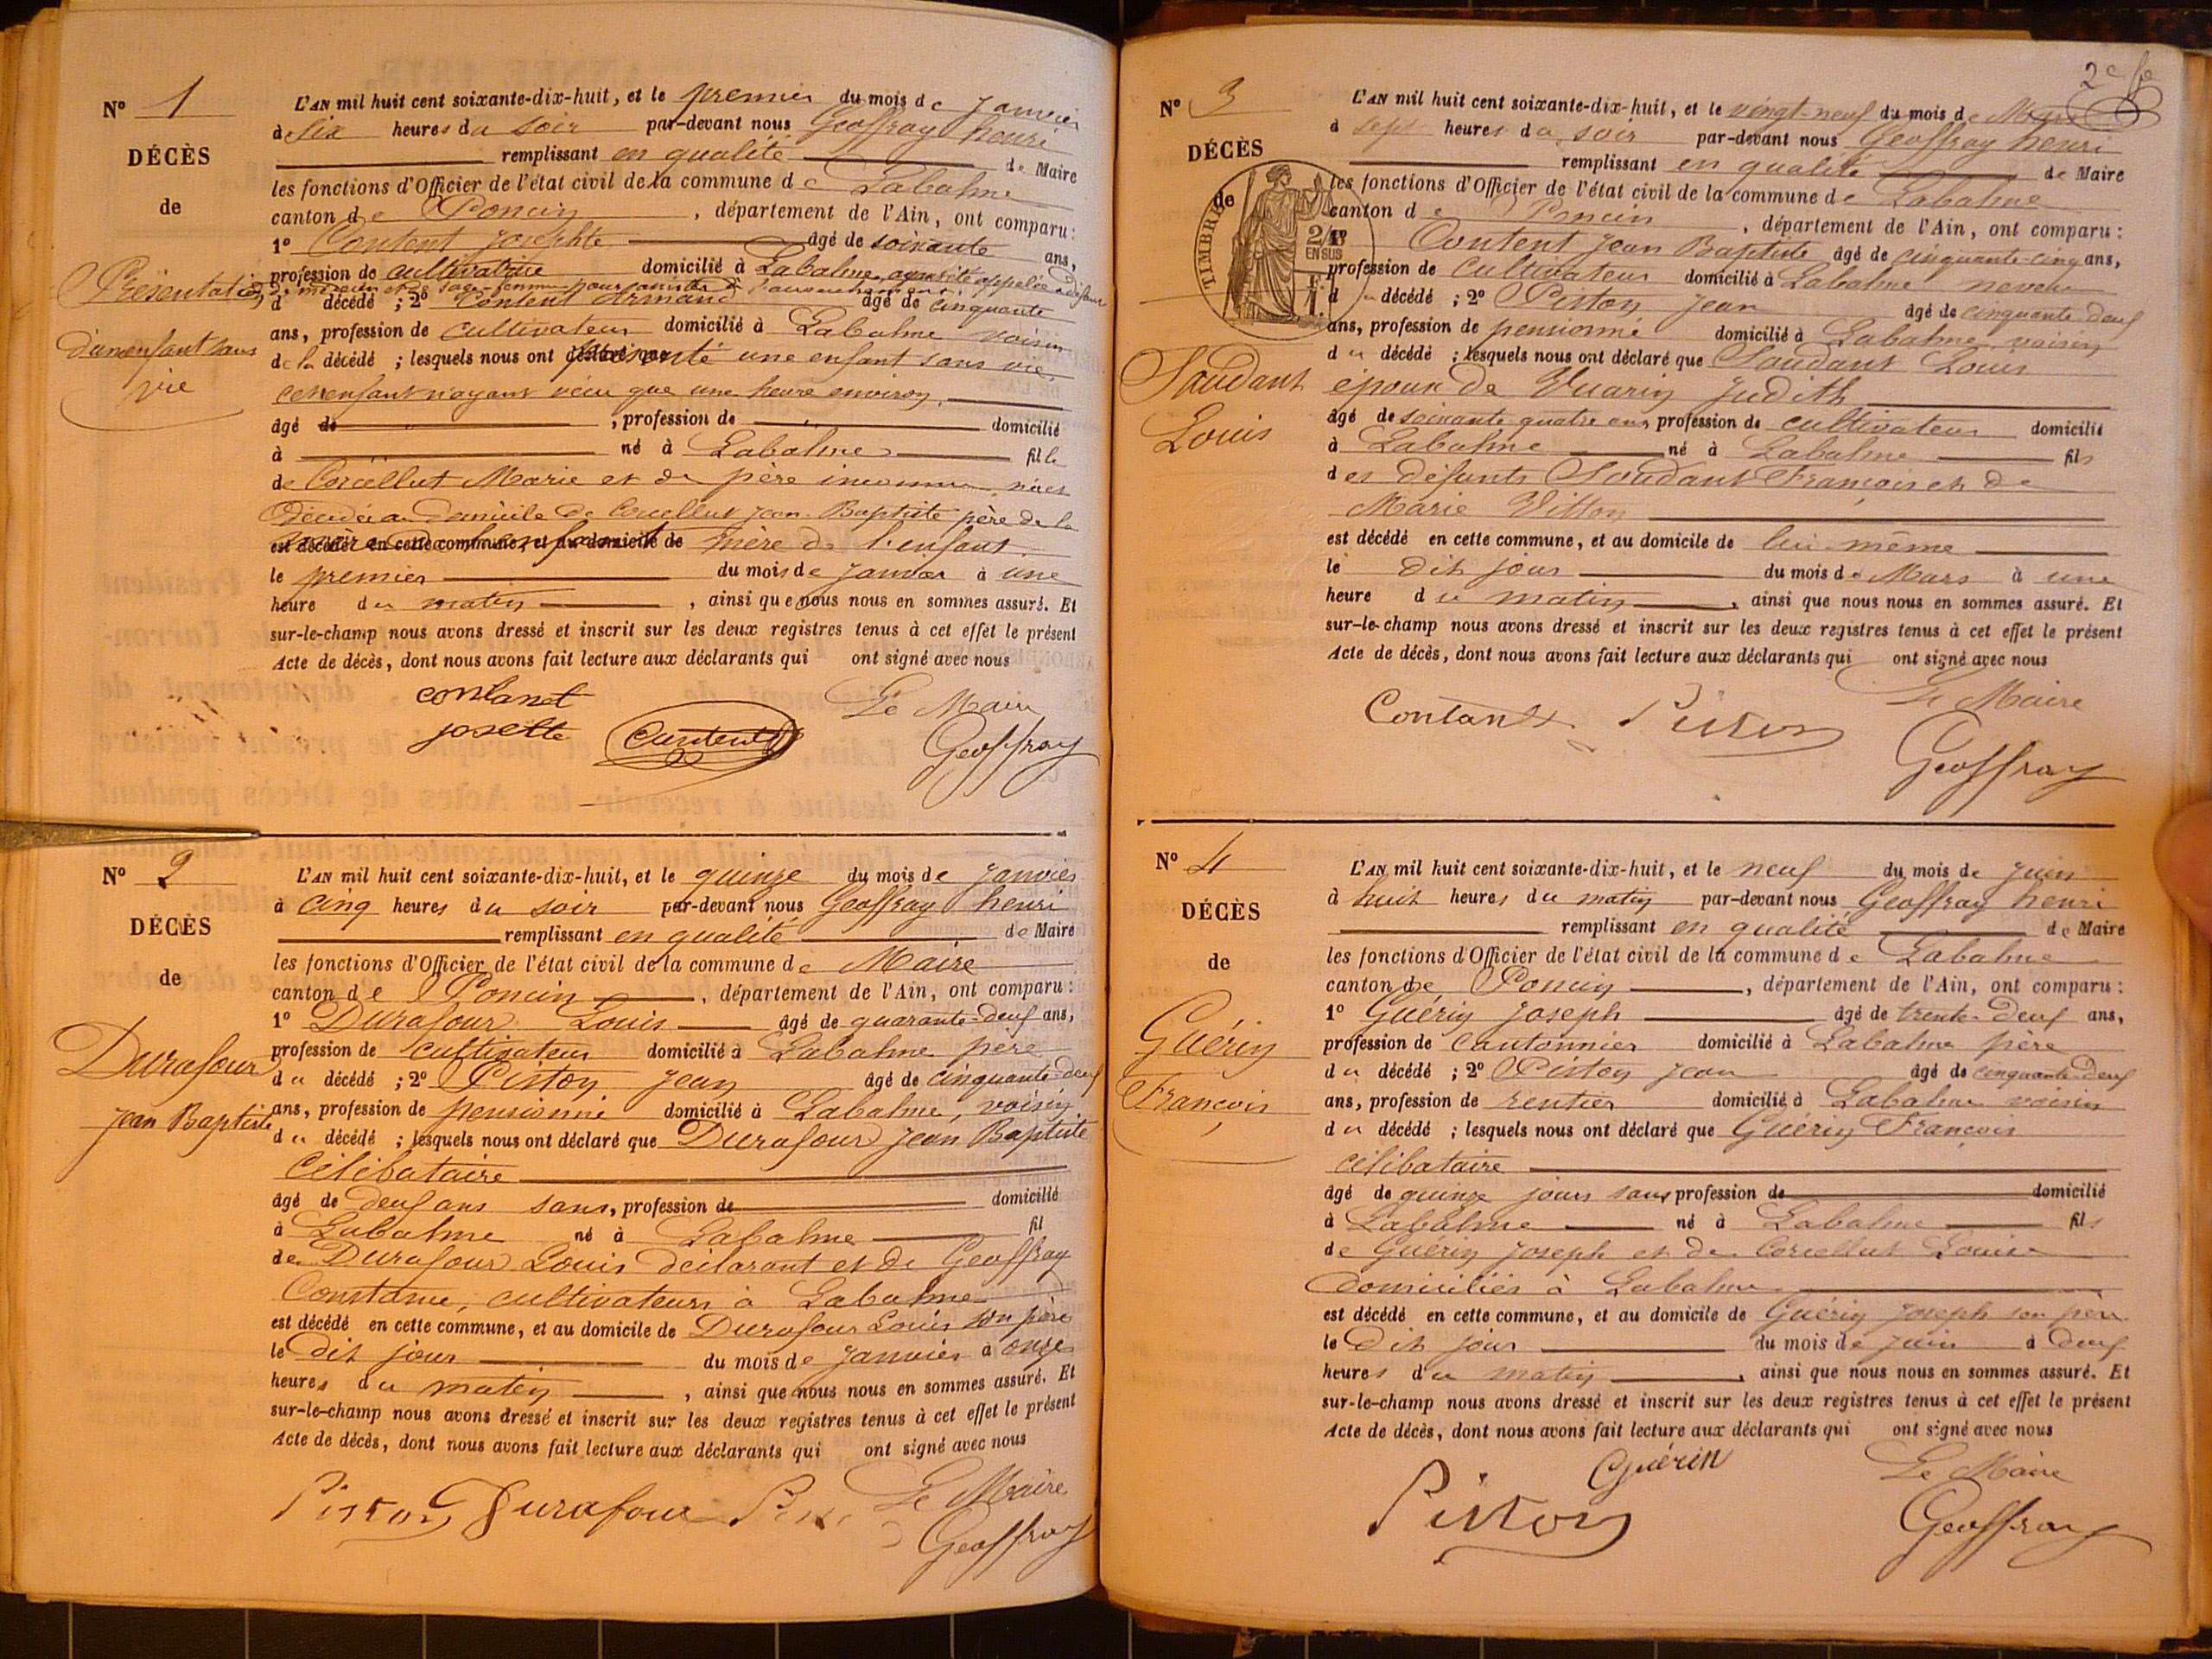 N° 1
DÉCÈS
de
Présentation
d'un enfant sans
vie
L'AN mil huit cent soixante-dix-huit, et le premier du mois de Janvier
à six heures du soir par-devant nous Geoffray henri
remplissant en qualité de Maire
les fonctions d'Officier de l'état civil de la commune de Labalme
canton de Poncin, département de l'Ain, ont comparu:
1° Content Josephte âgé de soixante ans,
profession de cultivatrice domicilié à Labalme, ayant été appelée à défaut
de médecin et de sage-femme pour assister à l'accouchement
d décédé ; 2° Content Armand âgé de cinquante
ans, profession de cultivateur domicilié à Labalme voisin
de la décédé ; lesquels nous ont déclaré que présenté une enfant sans vie,
cet enfant n'ayant vécu que une heure environ,
âgé de , profession de domicilié
à né à Labalme fille
de Corcellut Marie et de père inconnu, née et
décédée au domicile de Corcellut Jean-Baptiste père de la
est décédé en cette commune, et au domicile de mère de l'enfant
le premier du mois de Janvier à une
heure du matin, ainsi que nous nous en sommes assuré. Et
sur-le-champ nous avons dressé et inscrit sur les deux registres tenus à cet effet le présent
Acte de décès, dont nous avons fait lecture aux déclarants qui ont signé avec nous
contanet
josette
Content
Le Maire
Geoffray
N° 2
DÉCÈS
de
Durafour
Jean Baptiste
L'AN mil huit cent soixante-dix-huit, et le quinze du mois de Janvier
à cinq heures du soir par-devant nous Geoffray henri
remplissant en qualité de Maire
les fonctions d'Officier de l'état civil de la commune de Maire
canton de Poncin, département de l'Ain, ont comparu:
1° Durafour Louis âgé de quarante-deuf ans,
profession de cultivateur domicilié à Labalme père
du décédé ; 2° Piston Jean âgé de cinquante-deuf
ans, profession de pensionné domicilié à Labalme, voisin
du décédé ; lesquels nous ont déclaré que Durafour Jean Baptiste
Célibataire
âgé de deuf ans sans, profession de domicilié
à Labalme né à Labalme fil
de Durafour Louis déclarant et de Geoffray
Constance, cultivateurs à Labalme
est décédé en cette commune, et au domicile de Durafour Louis son père
le dit jour du mois de Janvier à onze
heures du matin, ainsi que nous nous en sommes assuré. Et
sur-le-champ nous avons dressé et inscrit sur les deux registres tenus à cet effet le présent
Acte de décès, dont nous avons fait lecture aux déclarants qui ont signé avec nous
Piston Durafour
Le Maire
Geoffray
2e f
N° 3
DÉCÈS
de
TIMBRE
2/10 EN SUS
Saudant
Louis
L'AN mil huit cent soixante-dix-huit, et le vingt-neuf du mois de Mars
à sept heures du soir par-devant nous Geoffray henri
remplissant en qualité de Maire
les fonctions d'Officier de l'état civil de la commune de Labalme
canton de Poncin, département de l'Ain, ont comparu:
1° Content Jean Baptiste âgé de cinquante-cinq ans,
profession de cultivateur domicilié à Labalme neveu
du décédé ; 2° Piston Jean âgé de cinquante-deuf
ans, profession de pensionné domicilié à Labalme voisin
du décédé ; lesquels nous ont déclaré que Saudant Louis
époux de Vuarin Judith
âgé de soixante quatre ans, profession de cultivateur domicilié
à Labalme né à Labalme fils
des défunts Saudant François et de
Marie Vitton
est décédé en cette commune, et au domicile de lui-même
le dit jour du mois de Mars à une
heure du matin, ainsi que nous nous en sommes assuré. Et
sur-le-champ nous avons dressé et inscrit sur les deux registres tenus à cet effet le présent
Acte de décès, dont nous avons fait lecture aux déclarants qui ont signé avec nous
Contant Piston
Le Maire
Geoffray
N° 4
DÉCÈS
de
Guérin
François
L'AN mil huit cent soixante-dix-huit, et le neuf du mois de Juin
à huit heures du matin par-devant nous Geoffray henri
remplissant en qualité de Maire
les fonctions d'Officier de l'état civil de la commune de Labalme
canton de Poncin, département de l'Ain, ont comparu:
1° Guérin Joseph âgé de trente-deuf ans,
profession de Cantonnier domicilié à Labalme père
du décédé ; 2° Piston Jean âgé de cinquante-deuf
ans, profession de rentier domicilié à Labalme voisin
du décédé ; lesquels nous ont déclaré que Guérin François
célibataire
âgé de quinze jours sans profession de domicilié
à Labalme né à Labalme fils
de Guérin Joseph et de Corcellut Louise
domiciliés à Labalme
est décédé en cette commune, et au domicile de Guérin Joseph son père
le dit jour du mois de Juin à deuf
heures du matin, ainsi que nous nous en sommes assuré. Et
sur-le-champ nous avons dressé et inscrit sur les deux registres tenus à cet effet le présent
Acte de décès, dont nous avons fait lecture aux déclarants qui ont signé avec nous
Guérin
Piston
Le Maire
Geoffray